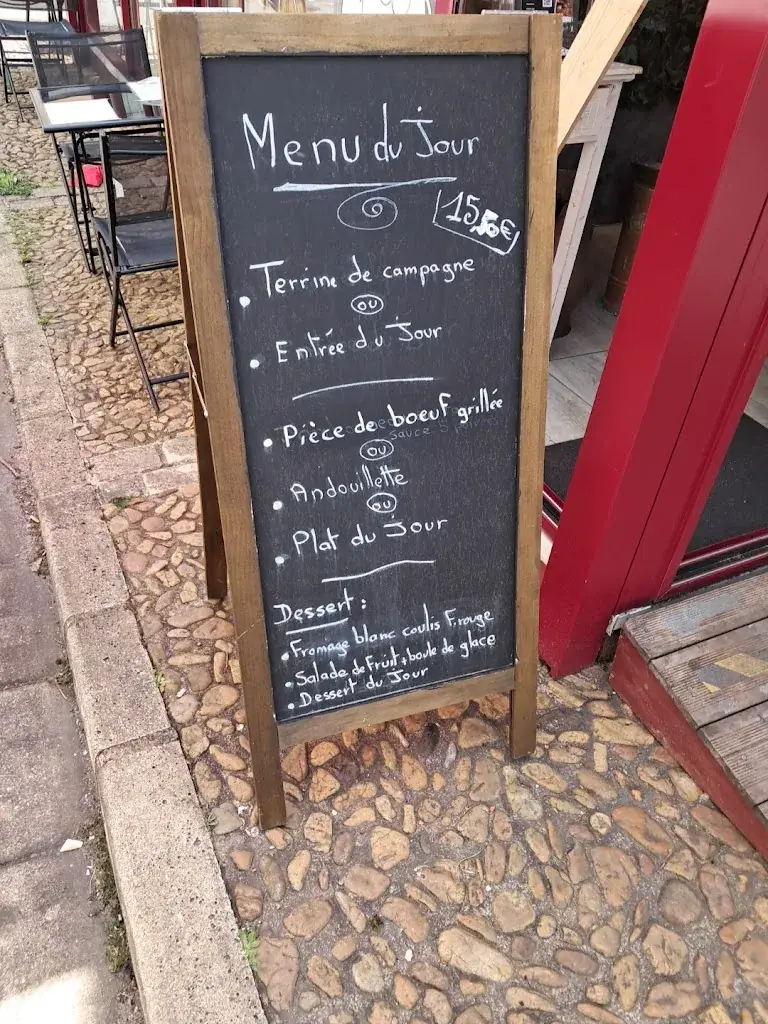 Menu du Jour
15,50€
• Terrine de campagne
ou
• Entrée du Jour
• Pièce de boeuf grillée
sauce
ou
• Andouillette
ou
• Plat du Jour
Dessert :
• Fromage blanc coulis F. rouge
• Salade de Fruit + boule de glace
• Dessert du Jour